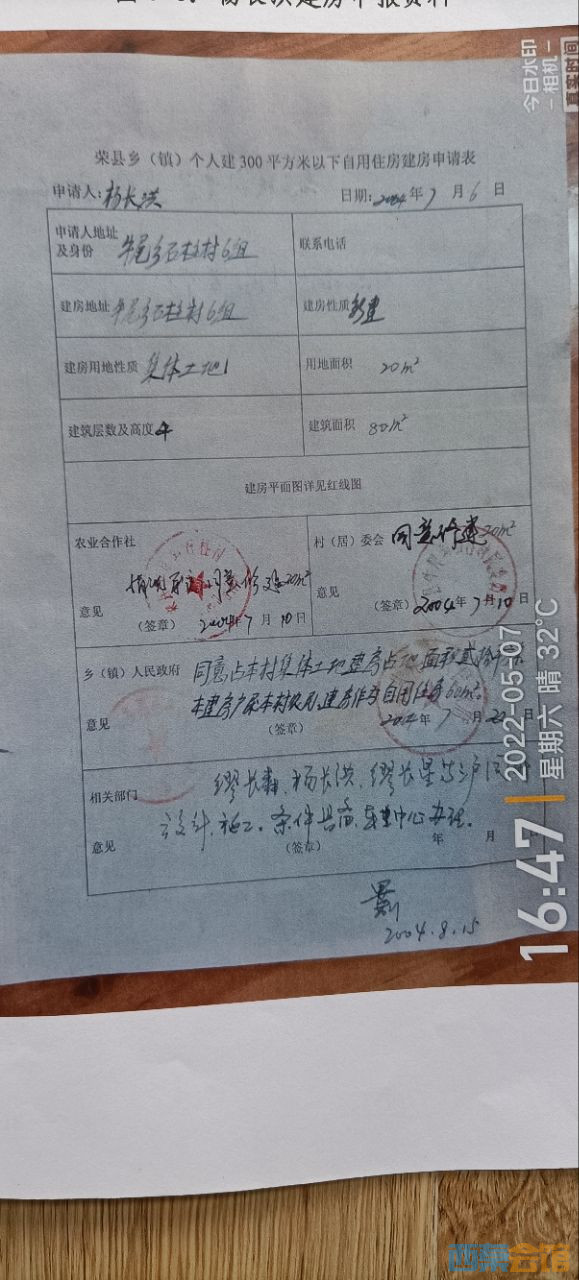 杨长洪建房申报资料
荣县乡（镇）个人建300平方米以下自用住房建房申请表
申请人：杨长洪 日期：2004年7月6日
申请人地址及身份 牛尾乡石柱村6组 联系电话
建房地址 牛尾乡石柱村6组 建房性质 新建
建房用地性质 集体土地 用地面积 20m²
建筑层数及高度 4 建筑面积 80m²
建房平面图详见红线图
农业合作社 村（居）委会 同意修建20m²
同意修建20m²
意见 意见
（签章） 2004年7月10日 （签章） 2004年7月10日
乡（镇）人民政府 同意占本村集体土地建房占地面积贰拾
本建房户系本村农民，建房作为自用住房
意见 （签章） 2004年7月22日
相关部门 缪长青、杨长洪、缪长星
设计、施工。条件具备，中心办理。
意见 （签章） 年 月
2004.8.15
今日水印
-相机-
真实时间
16:47
2022-05-07
星期六 晴 32°C
西部会馆